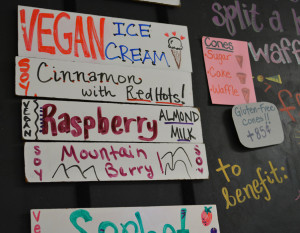 VEGAN ICE CREAM
SOY Cinnamon
with Red Hots!
VEGAN Raspberry ALMOND MILK
SOY Mountain Berry SOY
Sorbet
split a
waff
Cones
Sugar
Cake
Waffle
Gluten-free
cones!!
+85¢
to
benefit: